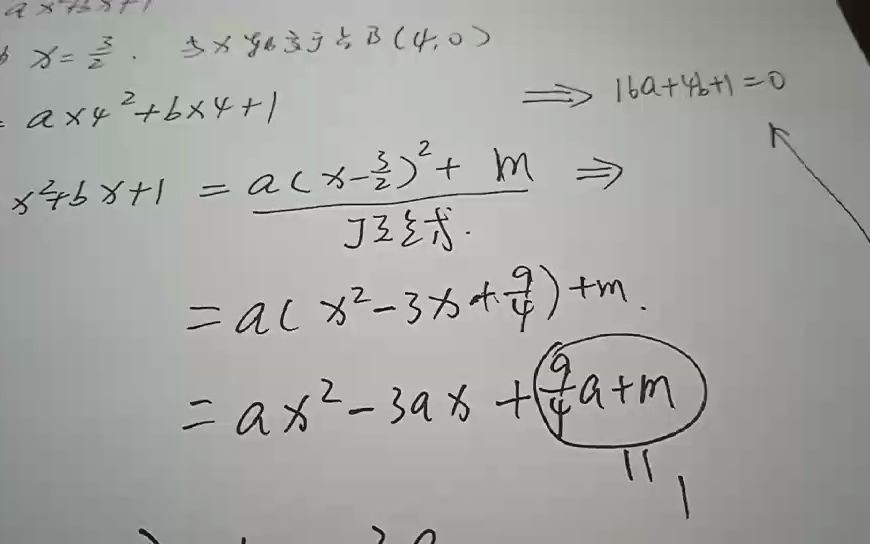 x = 3/2. 与x轴交于点B(4,0)
= a×4²+b×4+1 ⟹ 16a+4b+1=0
x²+bx+1 = a(x-3/2)²+m ⟹
顶点式.
= a(x²-3x+9/4)+m.
= ax²-3ax+9/4a+m
= 1